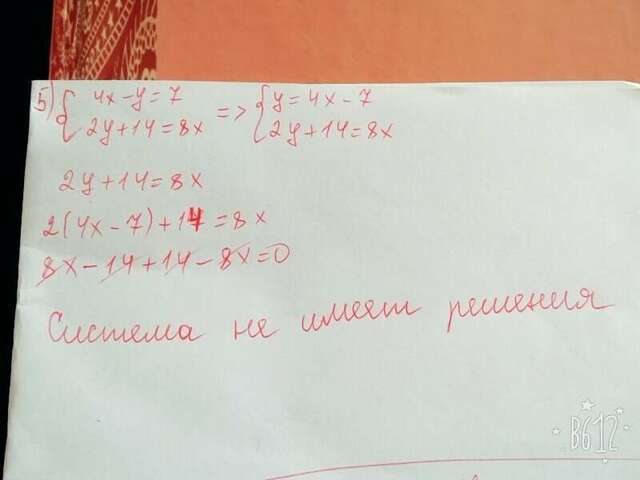 5) { 4x-y=7 => { y=4x-7
2y+14=8x 2y+14=8x
2y+14=8x
2(4x-7)+14=8x
8x-14+14-8x=0
Система не имеет решения
B612